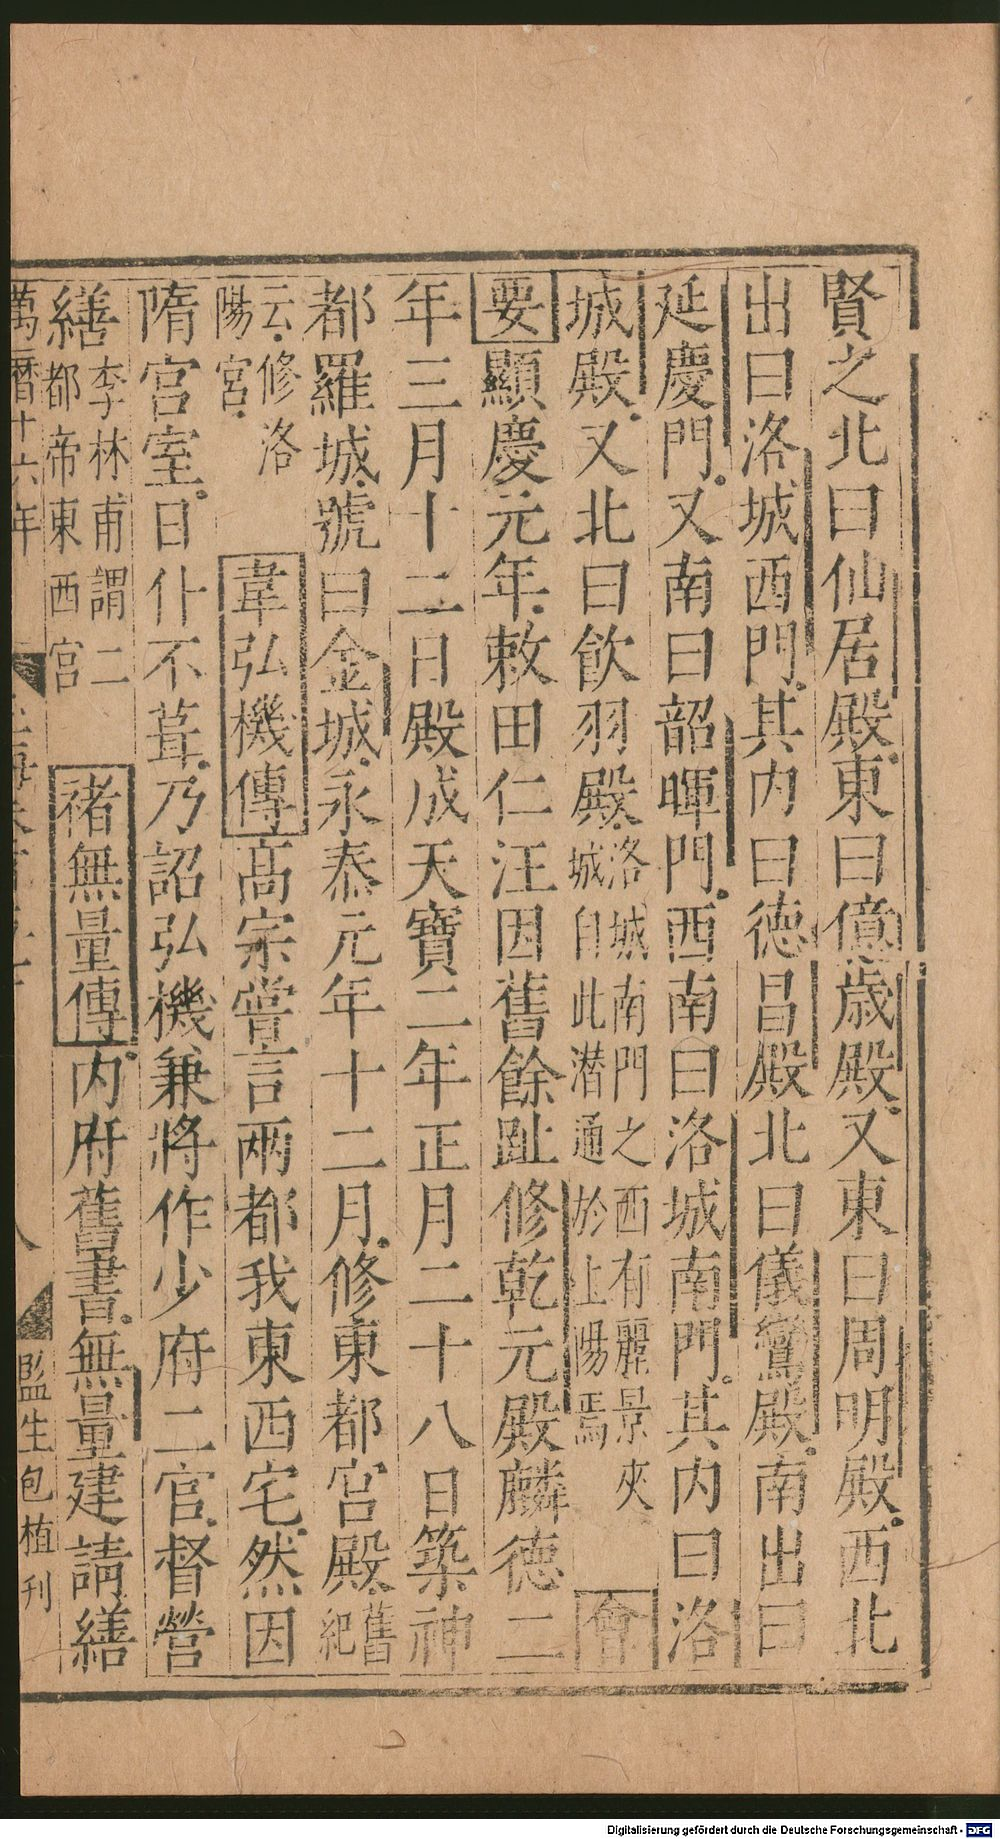 賢之北曰仙居殿東曰億歲殿又東曰周明殿西北
出曰洛城西門其内曰德昌殿北曰儀鸞殿南出曰
延慶門又南曰韶暉門西南曰洛城南門其内曰洛
城殿又北曰飲羽殿洛城南門之西有麗景夾城自此潛通於上陽焉會
要顯慶元年敕田仁汪因舊餘趾修乾元殿麟德二
年三月十二日殿成天寶二年正月二十八日築神
都羅城號曰金城永泰元年十二月修東都宮殿舊紀
云修洛陽宮韋弘機傳高宗嘗言兩都我東西宅然因
隋宮室日仆不葺乃詔弘機兼將作少府二官督營
繕李林甫謂二都帝東西宮褚無量傳内府舊書無量建請繕
萬曆十六年
八
監生包植刊
Digitalisierung gefördert durch die Deutsche Forschungsgemeinschaft - DFG